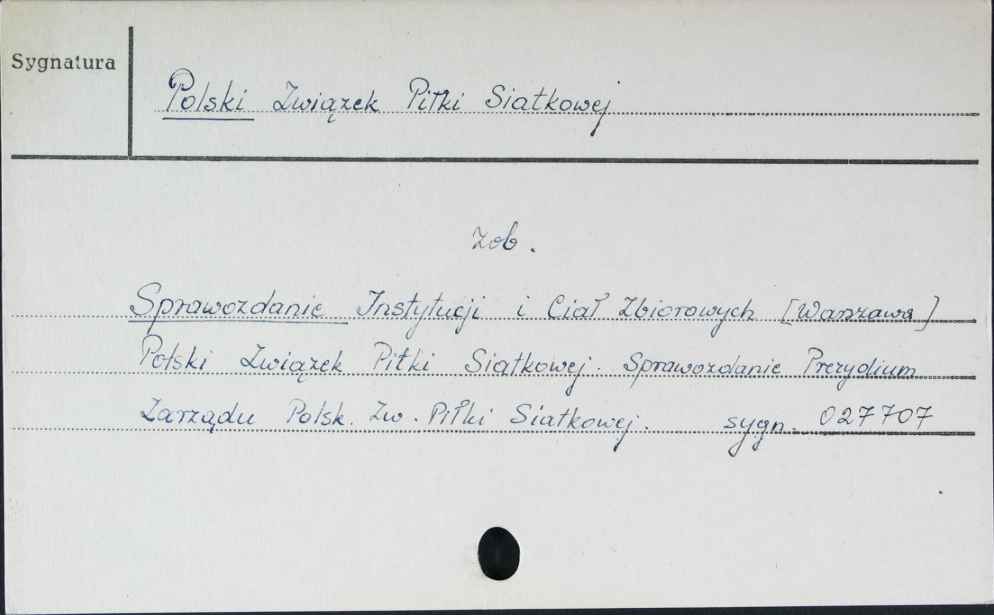 Sygnatura
Polski Związek Piłki Siatkowej
zob.
Sprawozdanie Instytucji i Ciał Zbiorowych [Warszawa]
Polski Związek Piłki Siatkowej. Sprawozdanie Prezydium
Zarządu Polsk. Zw. Piłki Siatkowej. sygn. 027707